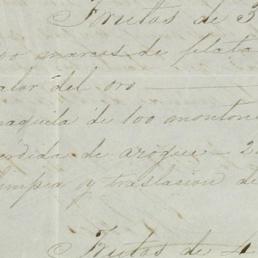 Frutos de 3
marcos de plata
valor del oro
maquila de 100 montone
perdida de azogue - 2
limpia y traslacion de
Frutos de 4